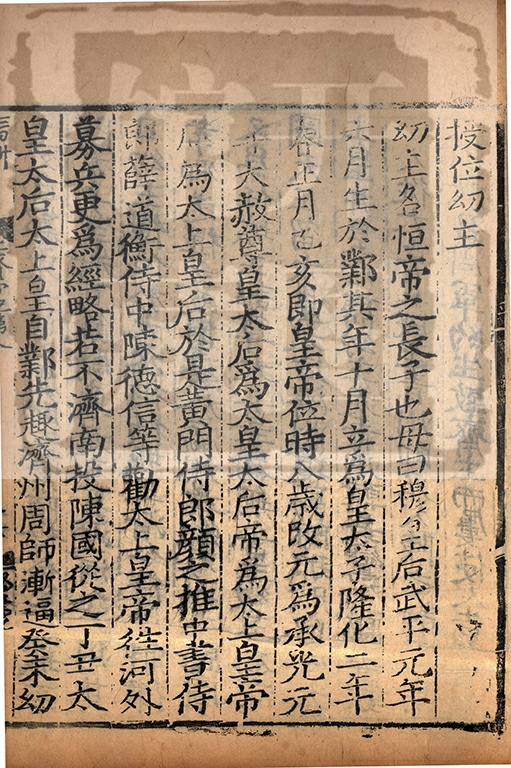 授位幼主
幼主名恒帝之長子也母曰穆皇后武平元年
六月生於鄴其年十月立爲皇太子隆化二年
春正月乙亥即皇帝位時八歲改元爲承光元
年大赦尊皇太后爲太皇太后帝爲太上皇帝
后爲太上皇后於是黄門侍郎顔之推中書侍
郎薛道衡侍中陳德信等勸太上皇帝徃河外
募兵更爲經略若不濟南投陳國從之丁丑太
皇太后太上皇自鄴先趣濟州周師漸逼癸未幼